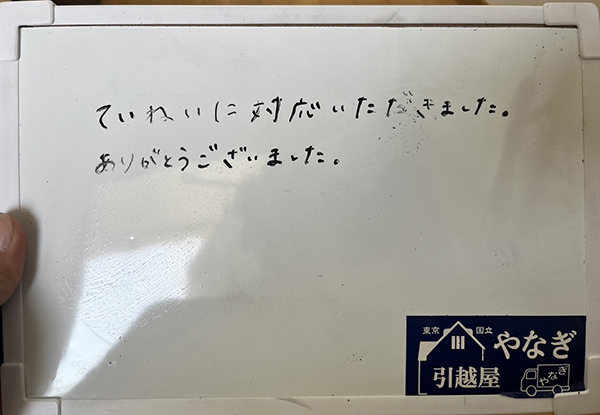 ていねいに対応いただきました。
ありがとうございました。
東京 国立 やなぎ
引越屋 やなぎ